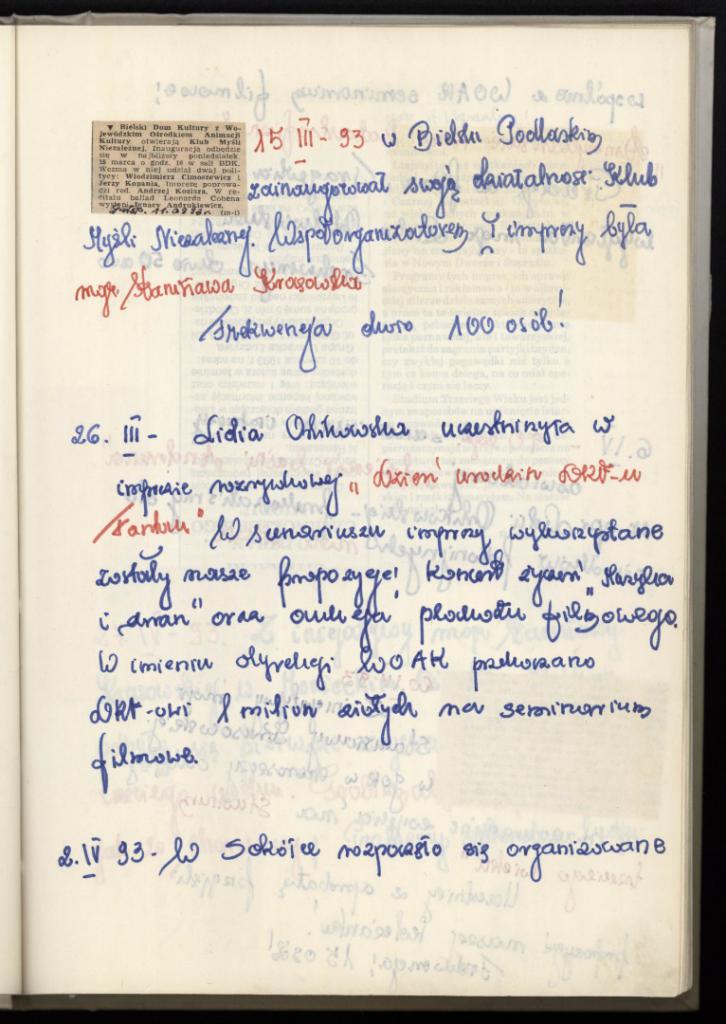 ▼ Bielski Dom Kultury z Wo-
jewódzkim Ośrodkiem Animacji
Kultury otwierają Klub Myśli
Niezależnej. Inauguracja odbędzie
się w najbliższy poniedziałek
15 marca o godz. 16 w sali BDK.
Wezmą w niej udział dwaj poli-
tycy: Włodzimierz Cimoszewicz i
Jerzy Kopania, imprezę poprowa-
dzi red. Andrzej Koziara. W re-
citalu ballad Leonarda Cohena
wystąpi Ignacy Andrukiewicz.
(m-i)
15 III - 93 w Bielsku Podlaskim
zainaugurował swoją działalność Klub
Myśli Niezależnej. Współorganizatorem I imprezy była
mgr Stanisława Krasowska
Frekwencja około 100 osób!
26. III - Lidia Ositkowska uczestniczyła w
imprezie rozrywkowej „Dzień urodzin DKF-u
Kantuk" W scenariuszu imprezy wykorzystane
zostały nasze propozycje: koncert życzeń „Muzyka
i ekran" oraz aukcja plakatu filmowego.
W imieniu dyrekcji WOAK przekazano
DKF-owi 1 milion złotych na seminarium
filmowe.
2. IV 93 - W Sokółce rozpoczęło się organizowane